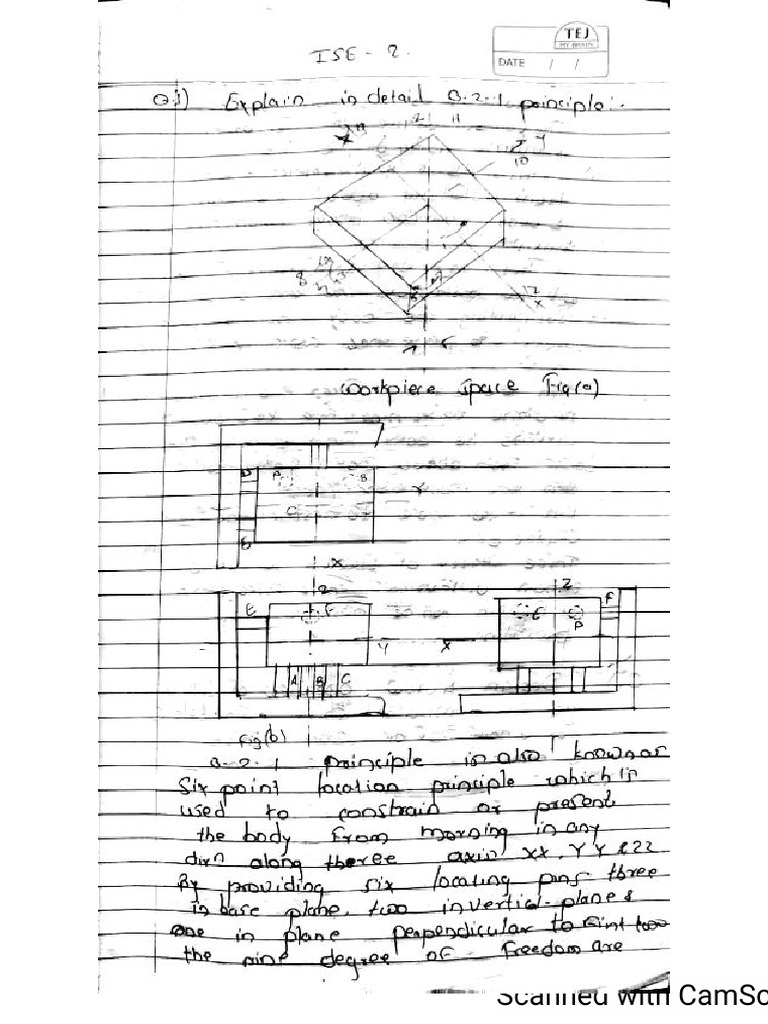 ISE - 2.
TEJ
DATE / /
Q.1) Explain in detail 3-2-1 principle.
Z 11
10
8
x
Workpiece Space Fig(a)
A B
Y
C
X
Z Z
E F E F
P
Y X
A B C
Fig(b)
3-2-1 principle is also known as
Six point location principle which is
used to constrain or present
the body from morning in any
dirn along theree axis XX, YY & ZZ
By providing six locating pins three
in base plane, two in vertical planes
one in plane perpendicular to first two
the nine degree of freedom are
Scanned with CamSc